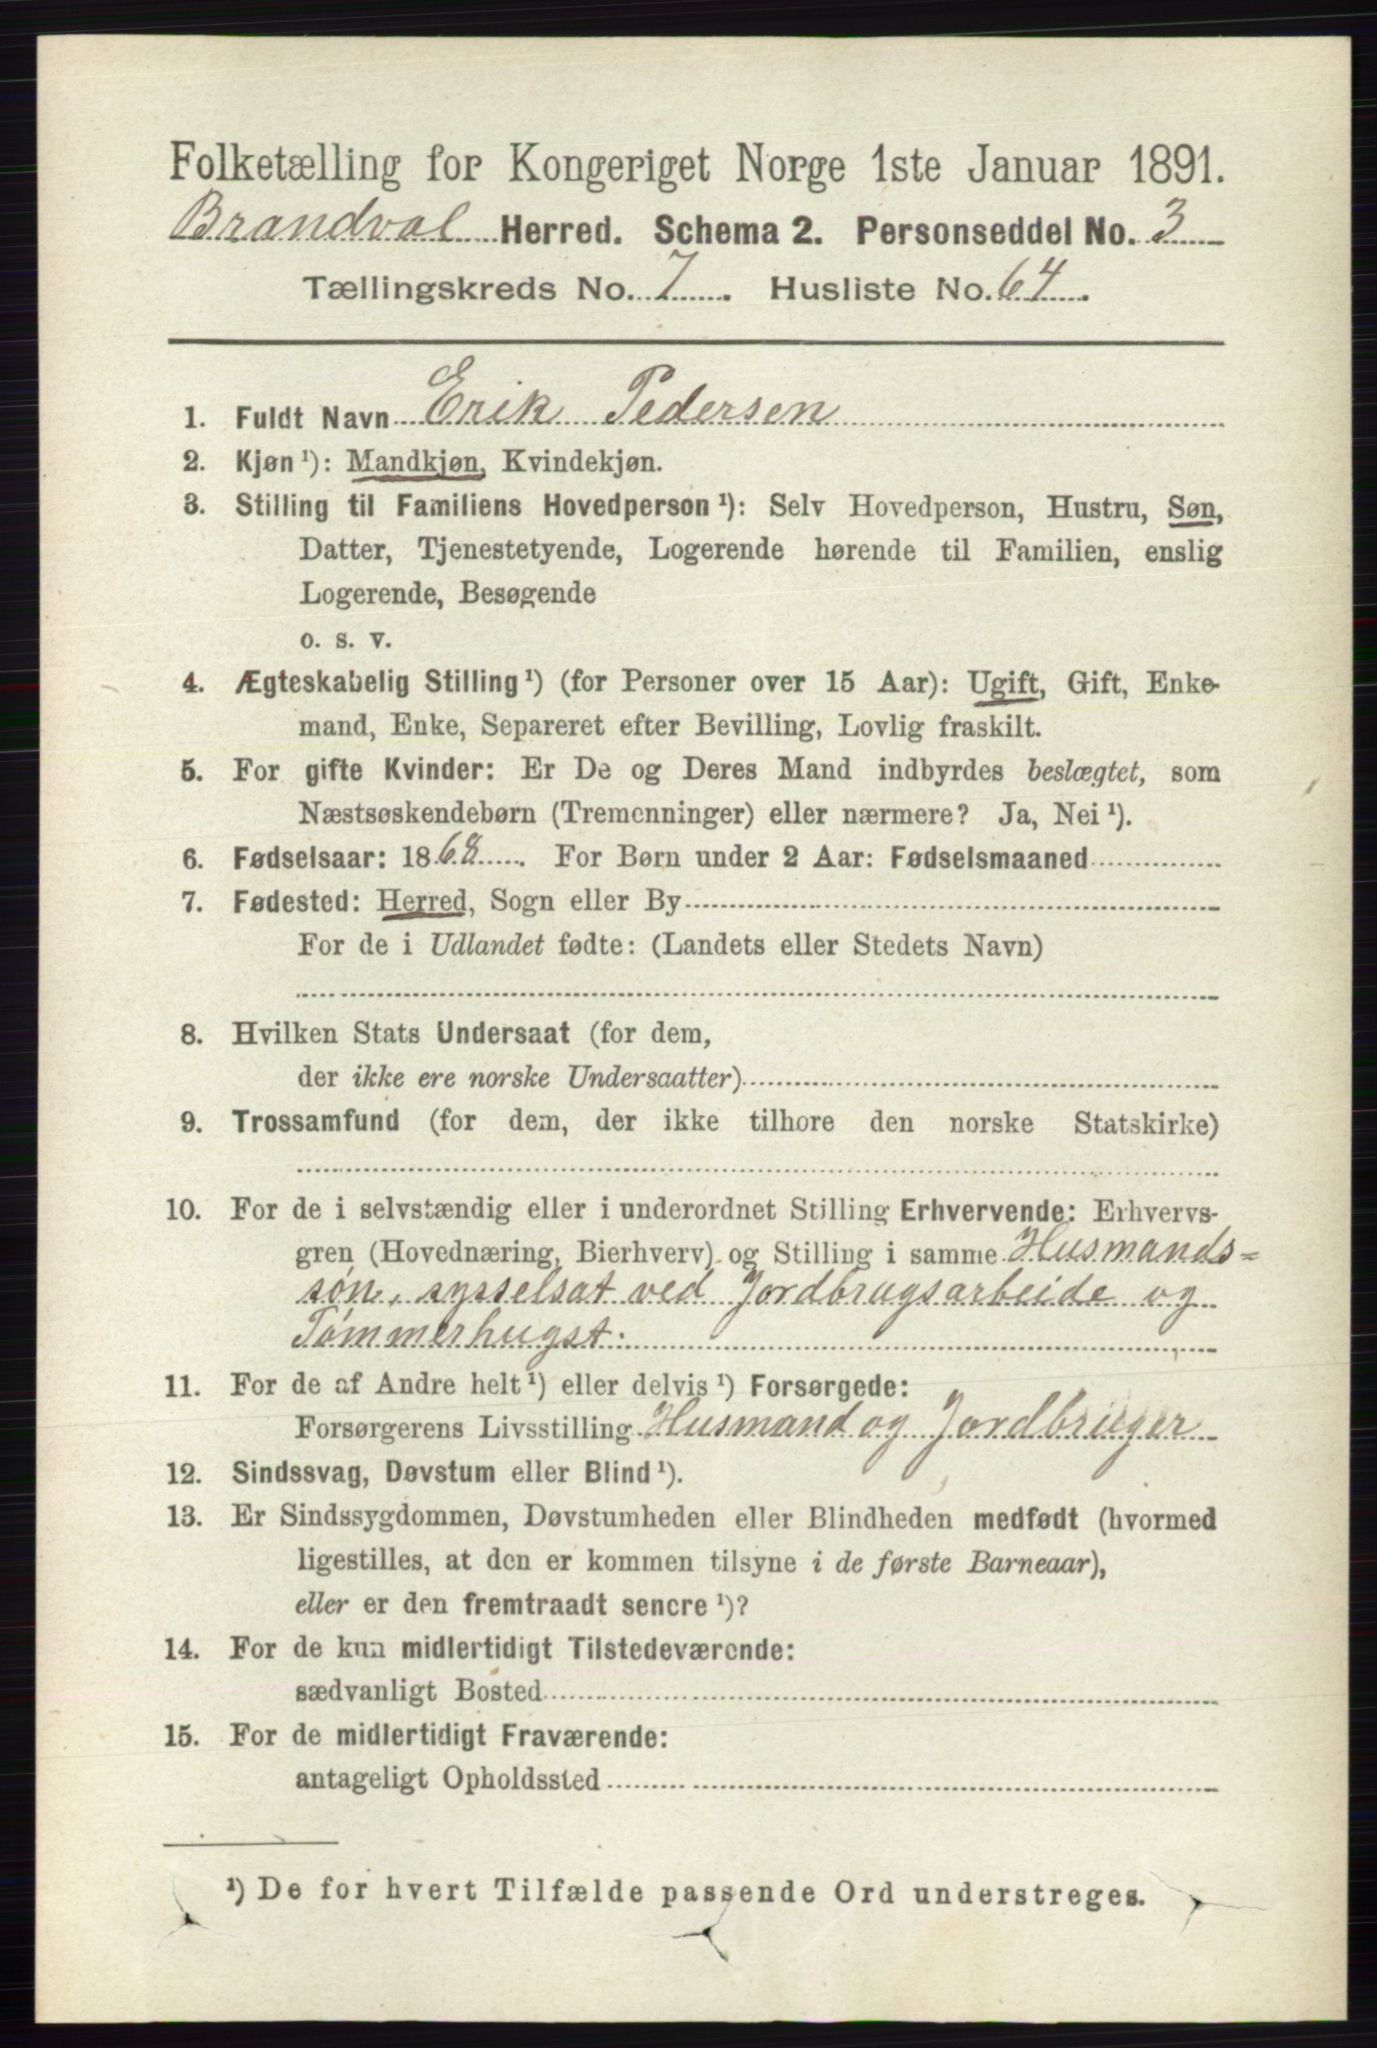 Folketælling for Kongeriget Norge 1ste Januar 1891.
Brandval Herred. Schema 2. Personseddel No. 3
Tællingskreds No. 7. Husliste No. 64.
1. Fuldt Navn Erik Pedersen
2. Kjøn ¹): Mandkjøn, Kvindekjøn.
3. Stilling til Familiens Hovedperson ¹): Selv Hovedperson, Hustru, Søn,
Datter, Tjenestetyende, Logerende hørende til Familien, enslig
Logerende, Besøgende
o. s. v.
4. Ægteskabelig Stilling ¹) (for Personer over 15 Aar): Ugift, Gift, Enke-
mand, Enke, Separeret efter Bevilling, Lovlig fraskilt.
5. For gifte Kvinder: Er De og Deres Mand indbyrdes beslægtet, som
Næstsøskendebørn (Tremenninger) eller nærmere? Ja, Nei ¹).
6. Fødselsaar: 1868. For Børn under 2 Aar: Fødselsmaaned
7. Fødested: Herred, Sogn eller By
For de i Udlandet fødte: (Landets eller Stedets Navn)
8. Hvilken Stats Undersaat (for dem,
der ikke ere norske Undersaatter)
9. Trossamfund (for dem, der ikke tilhore den norske Statskirke)
10. For de i selvstændig eller i underordnet Stilling Erhvervende: Erhvervs-
gren (Hovednæring, Bierhverv) og Stilling i samme Husmands=
søn, sysselsat ved Jordbrugsarbeide og
Tømmerhugst.
11. For de af Andre helt ¹) eller delvis ¹) Forsørgede:
Forsørgerens Livsstilling Husmand og Jordbruger
12. Sindssvag, Døvstum eller Blind ¹).
13. Er Sindssygdommen, Døvstumheden eller Blindheden medfødt (hvormed
ligestilles, at den er kommen tilsyne i de første Barneaar),
eller er den fremtraadt senere ¹)?
14. For de kun midlertidigt Tilstedeværende:
sædvanligt Bosted
15. For de midlertidigt Fraværende:
antageligt Opholdssted
¹) De for hvert Tilfælde passende Ord understreges.